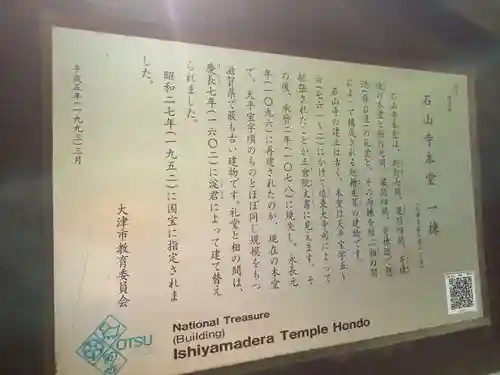 石山寺本堂 一棟
石山寺本堂は、桁行七間、梁間四間、寄棟
造の本堂と桁行九間、梁間四間、寄棟造、懸
造（舞台造）の礼堂と、その両棟を結ぶ相の間
によって構成される総檜皮葺の建物です。
石山寺の建立は古く、本堂は天平宝字五〜
六（七六一〜二）にかけて造東大寺司によって
拡張されたことが正倉院文書に見えます。そ
の後、承暦二年（一〇七八）に焼失し、永長元
年（一〇九六）に再建されたのが、現在の本堂
で、天平宝字頃のものとほぼ同じ規模をもつ
滋賀県で最も古い建物です。礼堂と相の間は、
慶長七年（一六〇二）に淀君によって建て替え
られました。
昭和二七年（一九五二）に国宝に指定されま
した。
平成五年（一九九三）三月
大津市教育委員会
OTSU
National Treasure
(Building)
Ishiyamadera Temple Hondo